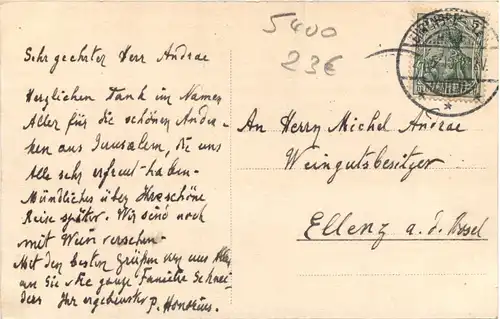 5400
23€
Sehr geehrter Herr Andrae
Herzlichen Dank im Namen
Aller für die schönen Anden-
ken aus Jerusalem, die uns
Alle sehr erfreut haben-
Mündliches über Ihre schöne
Reise später. Wir sind noch
mit Wein versehen-
Mit den besten Grüßen von uns Allen
an Sie die ganze Familie
Ihr ergebenster P. Honorius.
An Herrn Michel Andrae
Weingutsbesitzer
Ellenz a. d. Mosel